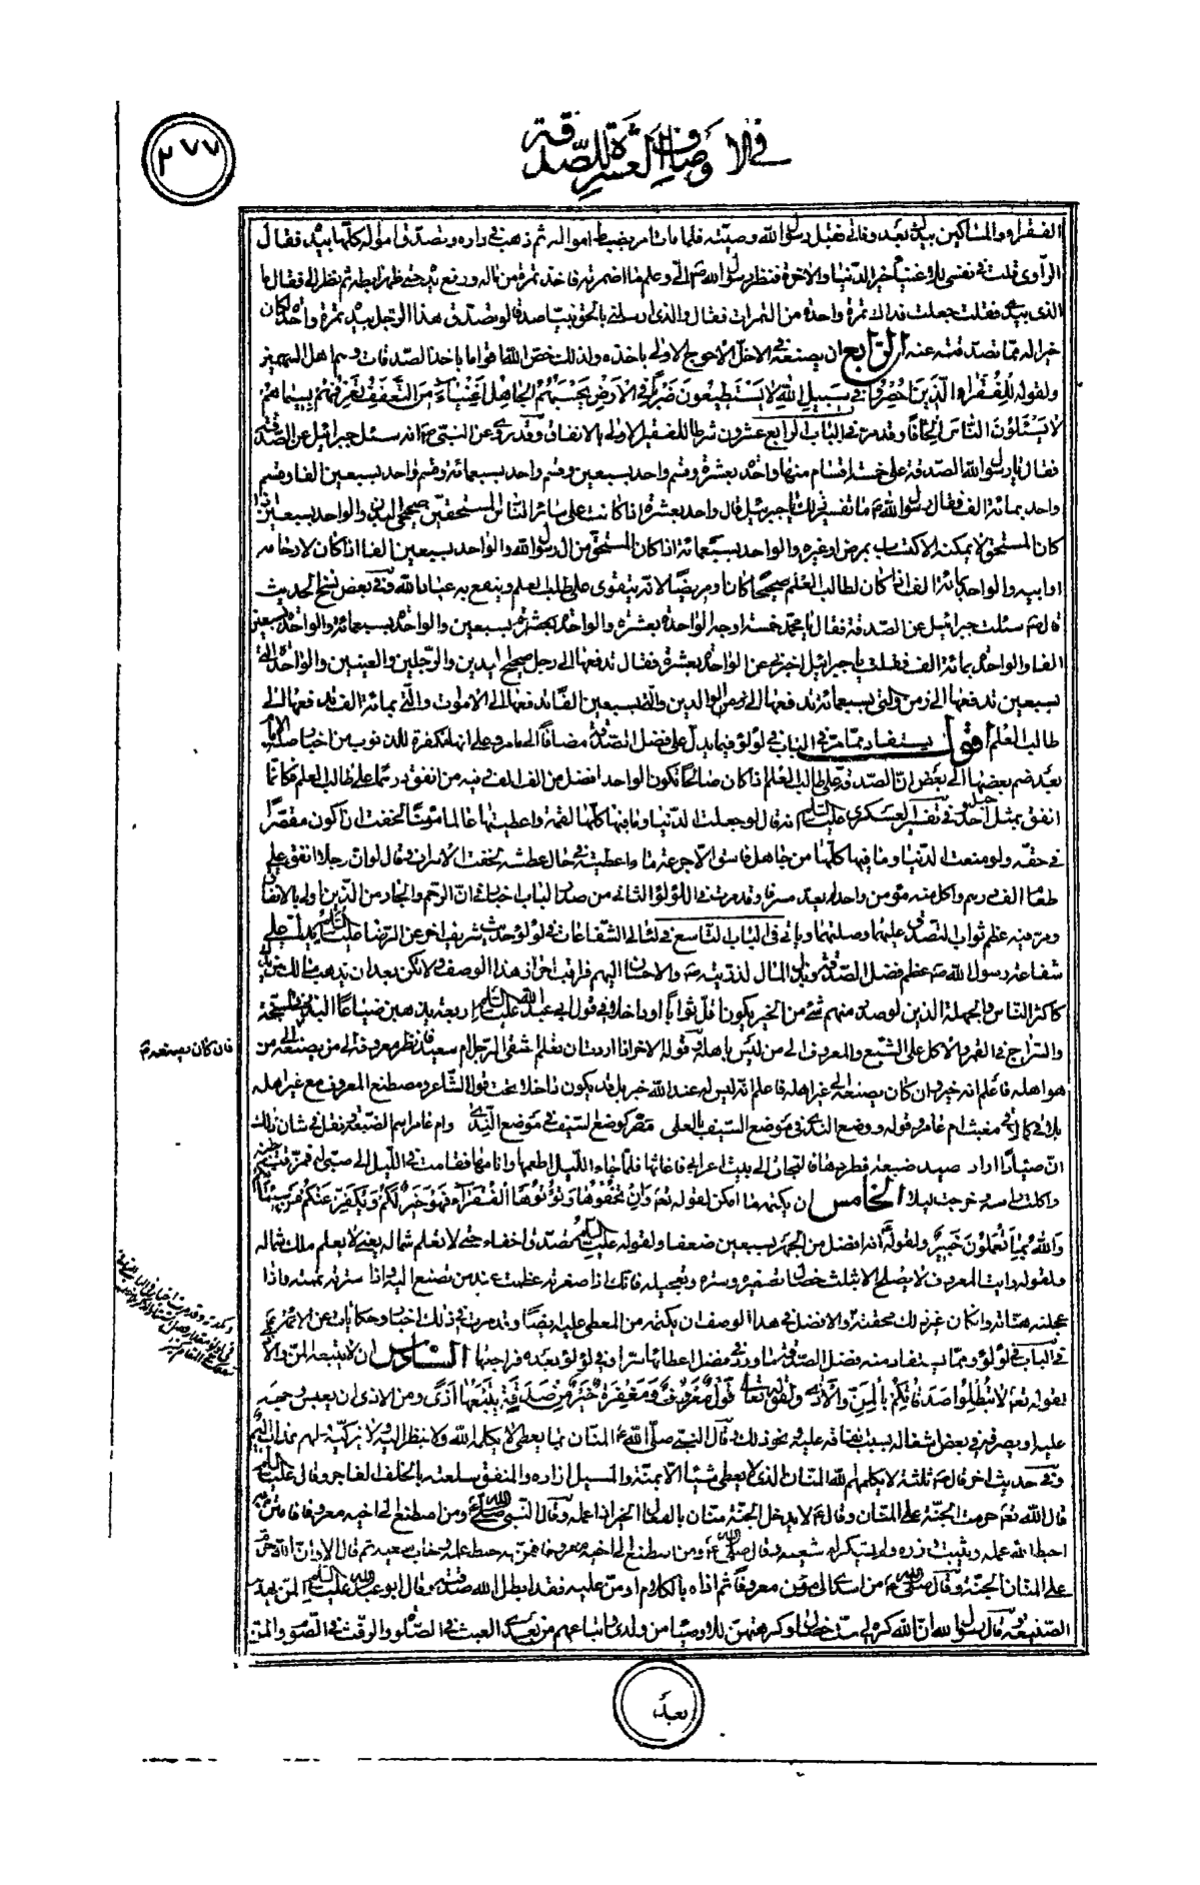 في الاوصاف العشرة للصدقة
٢٧٧
الفقراء والمساكين بيده بعد وفاتي فقبل رسول الله وصيته فلما مات امر بضبط امواله ثم ذهب في داره وتصدق امواله كلها بيده فقال
الراوي قلت في نفسي بلاغب خير الدنيا والاخرة فنظر رسول الله ص الي وعلم ما اضمرته فاخذ تمرة من ماله ورفع يده حتى ظهر ابطه ثم نظر الي فقال ما
الذي بيدي فقلت جعلت فداك تمرة واحدة من التمرات فقال والذي ارسلني بالحق نبيا صدقا لو تصدق هذا الرجل بيده تمرة واحدة كان
خيرا له مما تصدقته عنه الرابع ان يصنعه في الاخل الاحوج الاولى باخذه ولذلك خص الله اقواما باخذ الصدقات وهم اهل السهم
ولقوله للفقراء الذين احصروا في سبيل الله لا يستطيعون ضربا في الارض يحسبهم الجاهل اغنياء من التعفف تعرفهم بسيماهم
لا يسئلون الناس الحافا وقد مر في الباب الرابع عشرون شرطا للفقير الاولى بالانفاق وقد روي عن النبي ص انه سئل جبرائيل عن الصدقة
فقال يا رسول الله الصدقة على خمسة اقسام منها واحدة بعشرة وقسم واحد بسبعين وقسم واحد بسبعمائة وقسم واحد بسبعين الفا وقسم
واحد بمائة الف فقال رسول الله ص ما تفسير ذلك يا جبرئيل قال واحد بعشرة اذا كانت على سائر الناس المستحقين صحيحي البدن والواحد بسبعين اذا
كان المستحق لا يمكنه الاكتساب بمرض او غيره والواحد بسبعمائة اذا كان المستحق من ال رسول الله والواحد بسبعين الفا اذا كان لارحامه
او ابويه والواحد بمائة الف اذا كان لطالب العلم صحيحا كان او مريضا لانه يتقوى على طلب العلم وينفع به عباد الله وفي بعض نسخ الحديث
قال ص سئلت جبرائيل عن الصدقة فقال يا محمد خمسة اوجه الواحدة بعشرة والواحدة بعشرة بسبعين والواحدة بسبعمائة والواحدة بسبعين
الفا والواحدة بمائة الف فقلت يا جبرائيل اخبرني عن الواحدة بعشرة فقال تدفعها الى رجل صحيح اليدين والرجلين والعينين والواحدة التي
بسبعين تدفعها الى زمن والتي بسبعمائة تدفعها الى زمن الوالدين والتي بسبعين الفا تدفعها الى الاموات والتي بمائة الف تدفعها الى
طالب العلم اقول يستفاد مما مر في الباب في لؤلؤ وما يدل على فضل التصدق مضافا الى ما مر وعلى انها مكفرة للذنوب من اخبار صلة الارحام
بعد ضم بعضها الى بعض ان الصدقة على طالب العلم اذا كان صالحا تكون الواحد افضل من الف الف في فيه من انفق درهما على طالب العلم فكانما
انفق بمثل احد وفي تفسير العسكري عليه السلام قد قال لو جعلت الدنيا وما فيها كلها لقمة واعطيتها عالما مؤمنا لخفت ان اكون مقصرا
في حقه ولو منعت الدنيا وما فيها كلها من جاهل فاسق الا جرعة ماء واعطيته في حال عطشه لخفت الاسراف وقال لو ان رجلا انفق على
طعام الف درهم واكل منه مؤمن واحد لم يعد مسرفا وقد مرت في اللؤلؤ الثاني من صدر الباب اخبار في ان الرحم والجار من الذين اولى بالانفاق
ومر فيه عظم ثواب التصدق عليهما وصلتهما وياتي في الباب التاسع في لئالي الشفاعات في لؤلؤ حديث شريف اخر عن الرضا عليه السلام يدل على
شفاعة رسول الله ص عظم فضل الصدقة وبذل المال لذريته ص والاحسان اليهم فراقب احراز هذا الوصف ولا تكن بعد ان تذهب مالك من يدك
كاكثر الناس في الجملة الذين لو صدر منهم شئ من الخير يكون اقل ثوابا او داخلا في قول ابي عبد الله عليه السلام اربعة يذهبن ضياعا البذر في السبخة
والسراج في القمر والاكل على الشبع والمعروف الى من ليس باهله وقوله الاخر اذا اردت ان تعلم شقي الرجل ام سعيد فانظر معروفه الى من يصنعه الى من
هو اهله فاعلم انه خير وان كان يصنعه الى غير اهله فاعلم انه ليس له عند الله خير بل قد يكون داخلا تحت قول الشاعر ومصطنع المعروف مع غير اهله
يلاقي كما لاقى مغيث ام عامر وقوله ووضع الندى في موضع السيف بالعلى مضر كوضع السيف في موضع الندى وام عامر اسم الضبعة ونقل في شان ذلك
ان صيادا اراد صيد ضبعة فطردها فالتجات الى بيت اعرابي فاغاثها فلما جاء الليل اطعمها وانامها فقامت في الليل الى صبي له فمزقت بطنه
واكلت راسه وخرجت ليلا الخامس ان يكتمها ما امكن لقوله تعه وان تخفوها وتؤتوها الفقراء فهو خير لكم ويكفر عنكم من سيئاتكم
والله بما تعملون خبير ولقوله انه افضل من الجهر بسبعين ضعفا ولقوله عليه السلام تصدق اخفاء حتى لا تعلم شماله يعني لا يعلم ملك شماله
ولقوله رايت المعروف لا يصلح الا بثلث خصال تصغيره وستره وتعجيله فانك اذا صغرته عظمته عند من تصنع اليه واذا سترته تممته واذا
عجلته هناته وان كان غير ذلك محقته والافضل في هذا الوصف ان يكتمه من المعطى عليه ايضا وقد مرت في ذلك اخبار وحكايات عن الائمة ع
في الباب في لؤلؤ ومما يستفاد منه فضل الصدقة مما ورد في فضل اعطائها سرا وفي لؤلؤ بعده فراجعها السادس ان لا يتبعه المن والاذى
لقوله تعه لا تبطلوا صدقاتكم بالمن والاذى ولقوله تعالى قول معروف ومغفرة خير من صدقة يتبعها اذى ومن الاذى ان يعبس وجهه
عليه او يصرفه في بعض اشغاله بسبب انفاقه عليه ونحو ذلك وقال النبي صلى الله ع المنان بما يعطي لا يكلمه الله ولا ينظر اليه ولا يزكيه لهم عذاب اليم
وفي حديث اخر قال ص ثلثة لا يكلمهم الله المنان الذي لا يعطي شيئا الا بمنة والمسبل ازاره والمنفق سلعته بالحلف الفاجر وقال عليه السلام
قال الله تعه حرمت الجنة على المنان وقال ع لا يدخل الجنة منان بالفعال الخير اذا عمله وقال النبي صلى الله ع ومن اصطنع الى اخيه معروفا فامتن به
احبط الله عمله ويثبت وزره ولم يشكر له سعيه وقال صلى الله ع ومن اصطنع الى اخيه معروفا فمن به حبط عمله وخاب سعيه ثم قال الا وان الله حرم
على المنان الجنة وقال صلى الله ع من اسدى الى مؤمن معروفا ثم اذاه بالكلام او من عليه فقد ابطل الله صدقته وقال ابو عبد الله عليه السلام المن يهدم
الصنيعة وقال رسول الله ان الله كره لي ست خصال وكرهتهن للاوصياء من ولدي واتباعهم من بعدي العبث في الصلوة والرفث في الصوم والمن
فان كان يصنعه ص
بعد